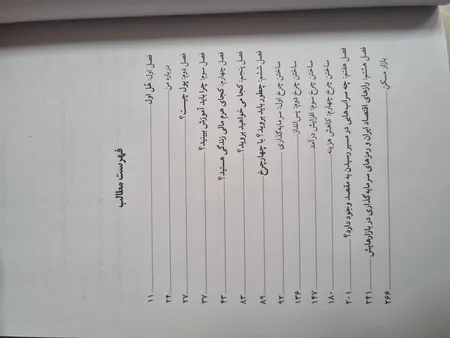 فهرست مطالب
فصل اول: هُل اول ........ ۱۱
درباره من ........ ۲۴
فصل دوم: پول چیست؟ ........ ۲۷
فصل سوم: چرا باید آموزش ببینید؟ ........ ۳۷
فصل چهارم: کجای هرم مالی زندگی هستید؟ ........ ۴۳
فصل پنجم: کجا می‌خواهید بروید؟ ........ ۸۳
فصل ششم: چطور باید بروید؟ با چهارچرخ ........ ۸۹
ساختن چرخ اول: سرمایه‌گذاری ........ ۹۲
ساختن چرخ دوم: پس‌انداز ........ ۱۳۶
ساختن چرخ سوم: افزایش درآمد ........ ۱۴۷
ساختن چرخ چهارم: کاهش هزینه ........ ۱۸۰
فصل هفتم: چه سراب‌هایی در مسیر رسیدن به مقصد وجود دارد؟ ........ ۲۰۱
فصل هشتم: رازهای اقتصاد ایران و رمزهای سرمایه‌گذاری در بازارهایش ........ ۲۴۱
بازار مسکن ........ ۲۶۶